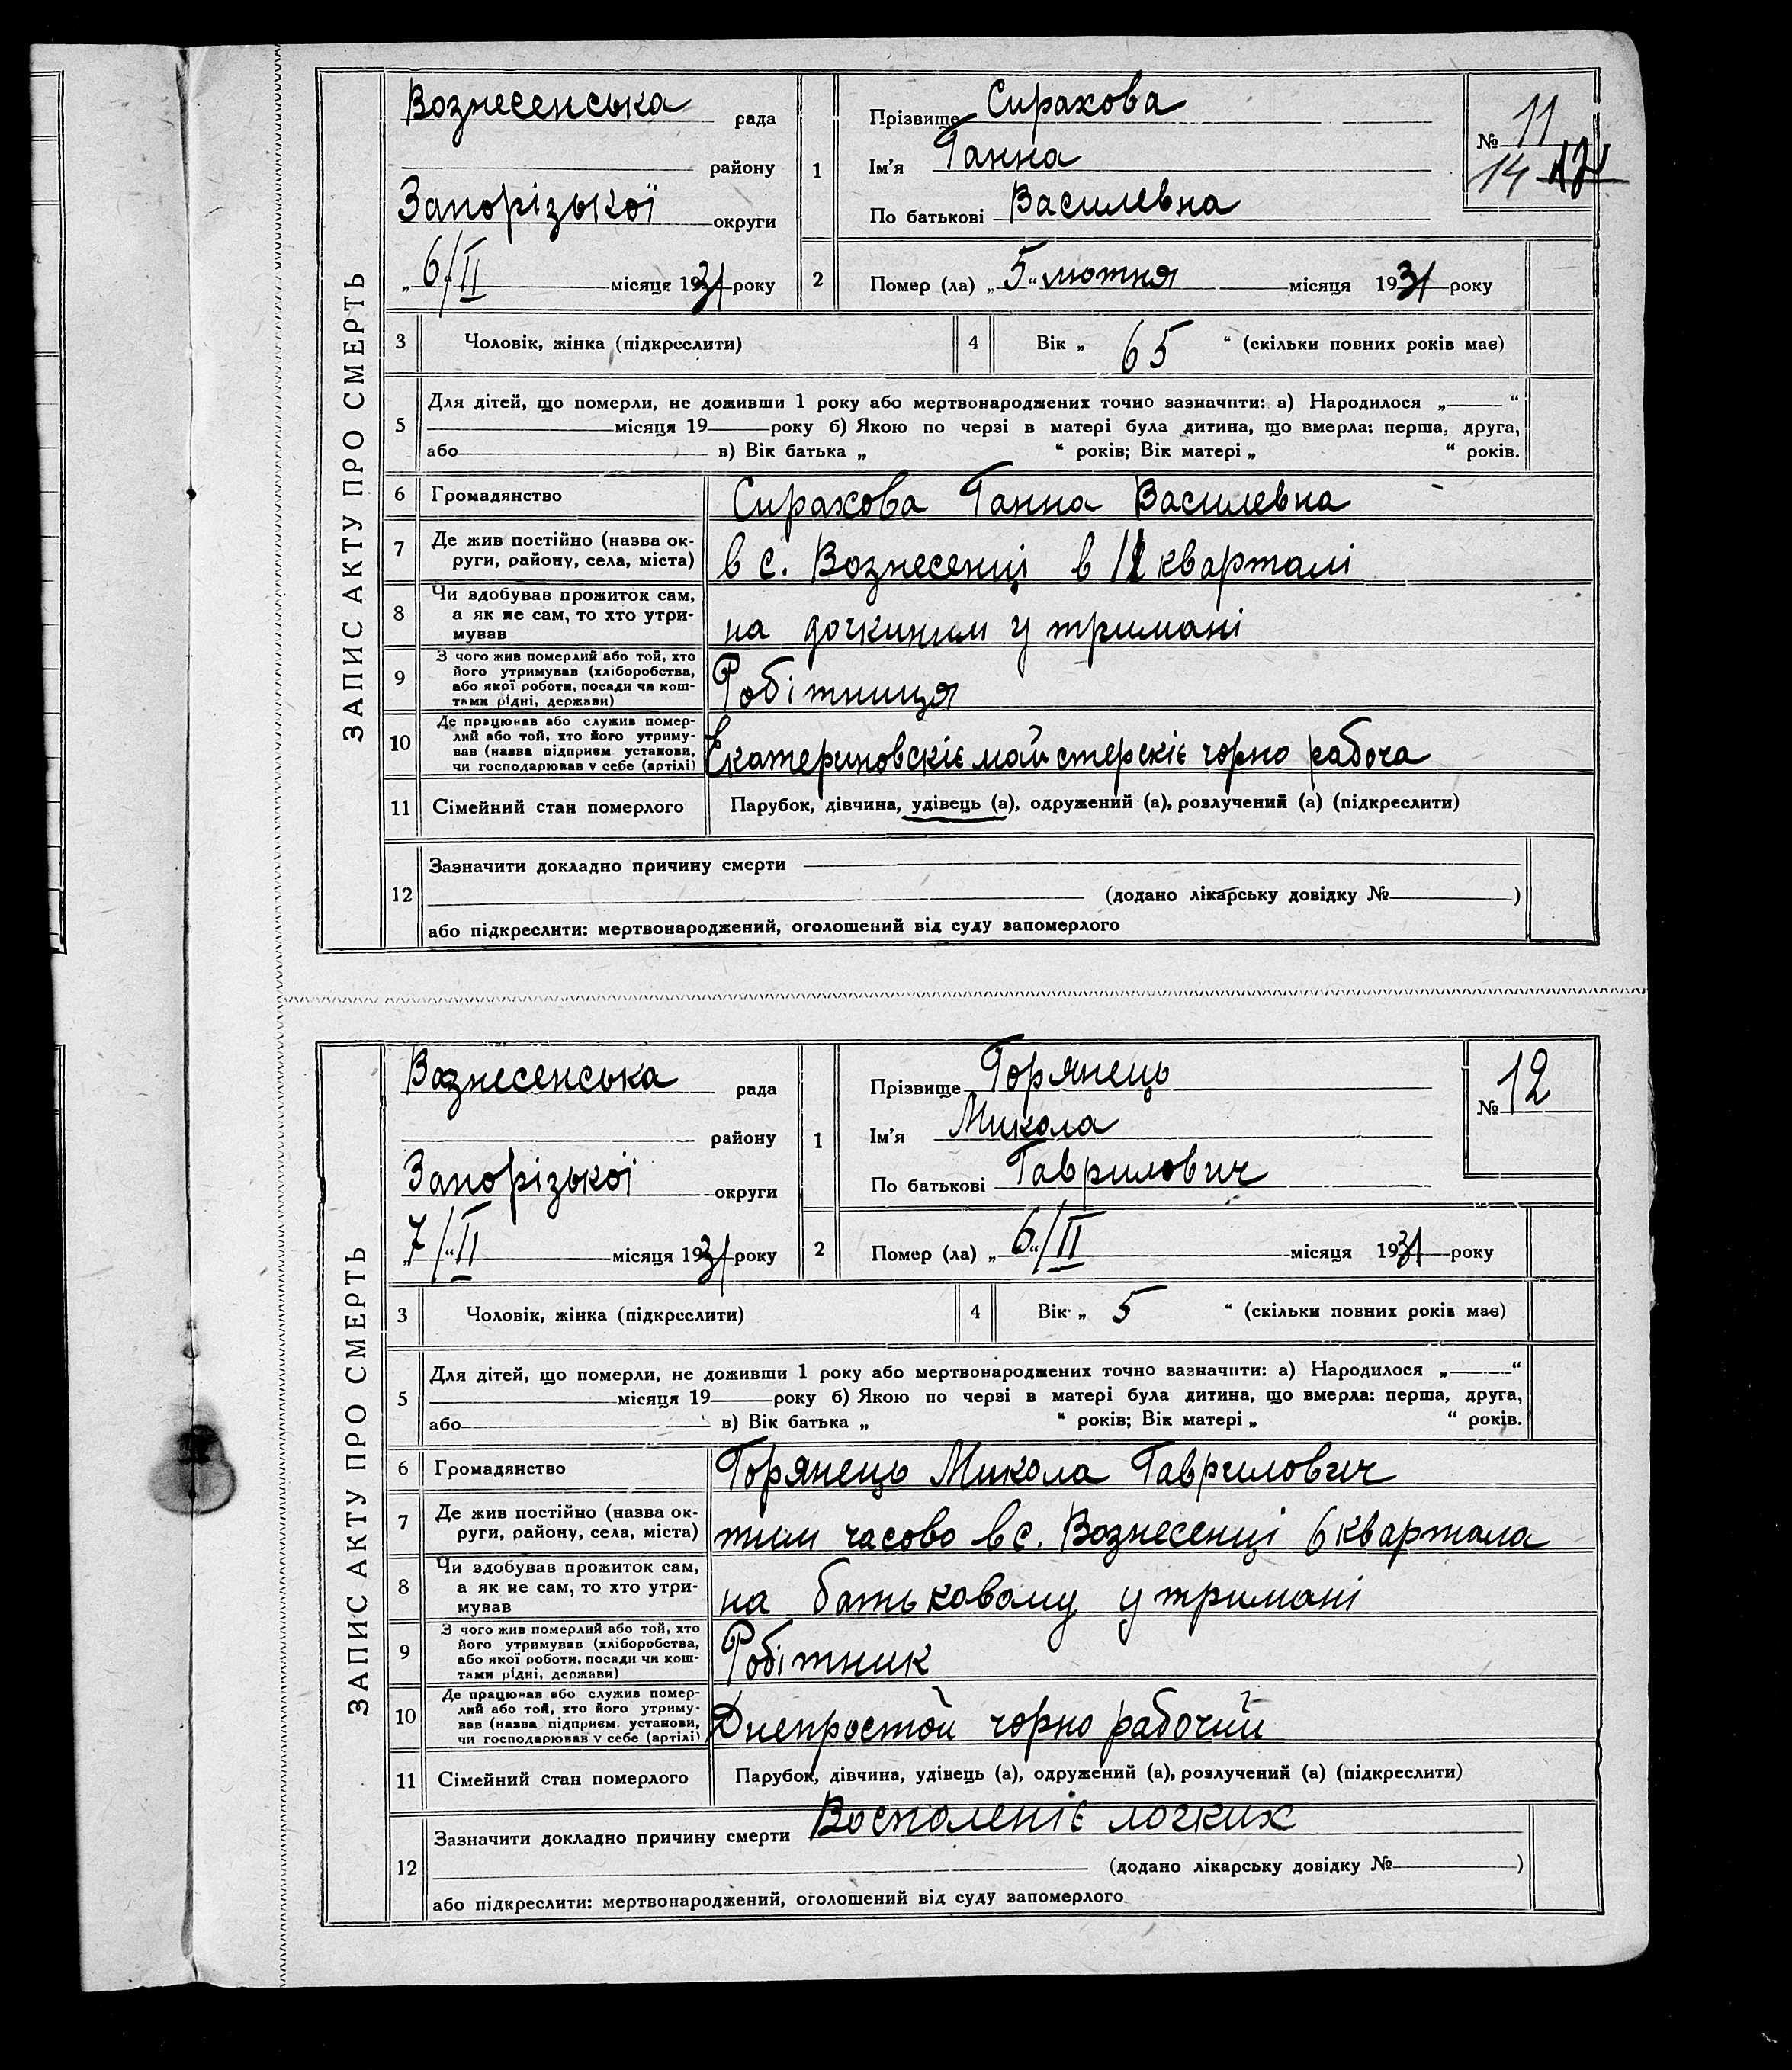 ЗАПИС АКТУ ПРО СМЕРТЬ
Вознесенська рада
району
Запорізької округи
„ 6/II місяця 1931 року
1
Прізвище Сирахова
Ім'я Ганна
По батькові Василевна
№ 11
14
2 Помер (ла) „ 5 “ лютня місяця 1931 року
3 Чоловік, жінка (підкреслити) 4 Вік „ 65 “ (скільки повних років має)
5 Для дітей, що померли, не доживши 1 року або мертвонароджених точно зазначити: а) Народилося „ “
місяця 19 року б) Якою по черзі в матері була дитина, що вмерла: перша, друга,
або в) Вік батька „ “ років; Вік матері „ “ років.
6 Громадянство Сирахова Ганна Василевна
7 Де жив постійно (назва ок-
руги, району, села, міста) в с. Вознесенці в кварталі
8 Чи здобував прожиток сам,
а як не сам, то хто утри-
мував на дочкиним утримані
9 З чого жив померлий або той, хто
його утримував (хліборобства,
або якої роботи, посади чи кош-
тами рідні, держави) Робітниця
10 Де працював або служив помер-
лий або той, хто його утриму-
вав (назва підприєм. установи,
чи господарював у себе (артілі) Екатериновскіє майстерскіє чорно рабоча
11 Сімейний стан померлого Парубок, дівчина, удівець (а), одружений (а), розлучений (а) (підкреслити)
12 Зазначити докладно причину смерти
(додано лікарську довідку № )
або підкреслити: мертвонароджений, оголошений від суду запомерлого
ЗАПИС АКТУ ПРО СМЕРТЬ
Вознесенська рада
району
Запорізької округи
„ 7/“II місяця 1931 року
1
Прізвище Горянець
Ім'я Микола
По батькові Гаврилович
№ 12
2 Помер (ла) „ 6“/II місяця 1931 року
3 Чоловік, жінка (підкреслити) 4 Вік „ 5 “ (скільки повних років має)
5 Для дітей, що померли, не доживши 1 року або мертвонароджених точно зазначити: а) Народилося „ “
місяця 19 року б) Якою по черзі в матері була дитина, що вмерла: перша, друга,
або в) Вік батька „ “ років; Вік матері „ “ років.
6 Громадянство Горянець Микола Гаврилович
7 Де жив постійно (назва ок-
руги, району, села, міста) тим часово в с. Вознесенці 6 квартала
8 Чи здобував прожиток сам,
а як не сам, то хто утри-
мував на батьковому утримані
9 З чого жив померлий або той, хто
його утримував (хліборобства,
або якої роботи, посади чи кош-
тами рідні, держави) Робітник
10 Де працював або служив помер-
лий або той, хто його утриму-
вав (назва підприєм. установи,
чи господарював у себе (артілі) Днепростой чорно рабочий
11 Сімейний стан померлого Парубок, дівчина, удівець (а), одружений (а), розлучений (а) (підкреслити)
12 Зазначити докладно причину смерти Воспаленіє логких
(додано лікарську довідку № )
або підкреслити: мертвонароджений, оголошений від суду запомерлого